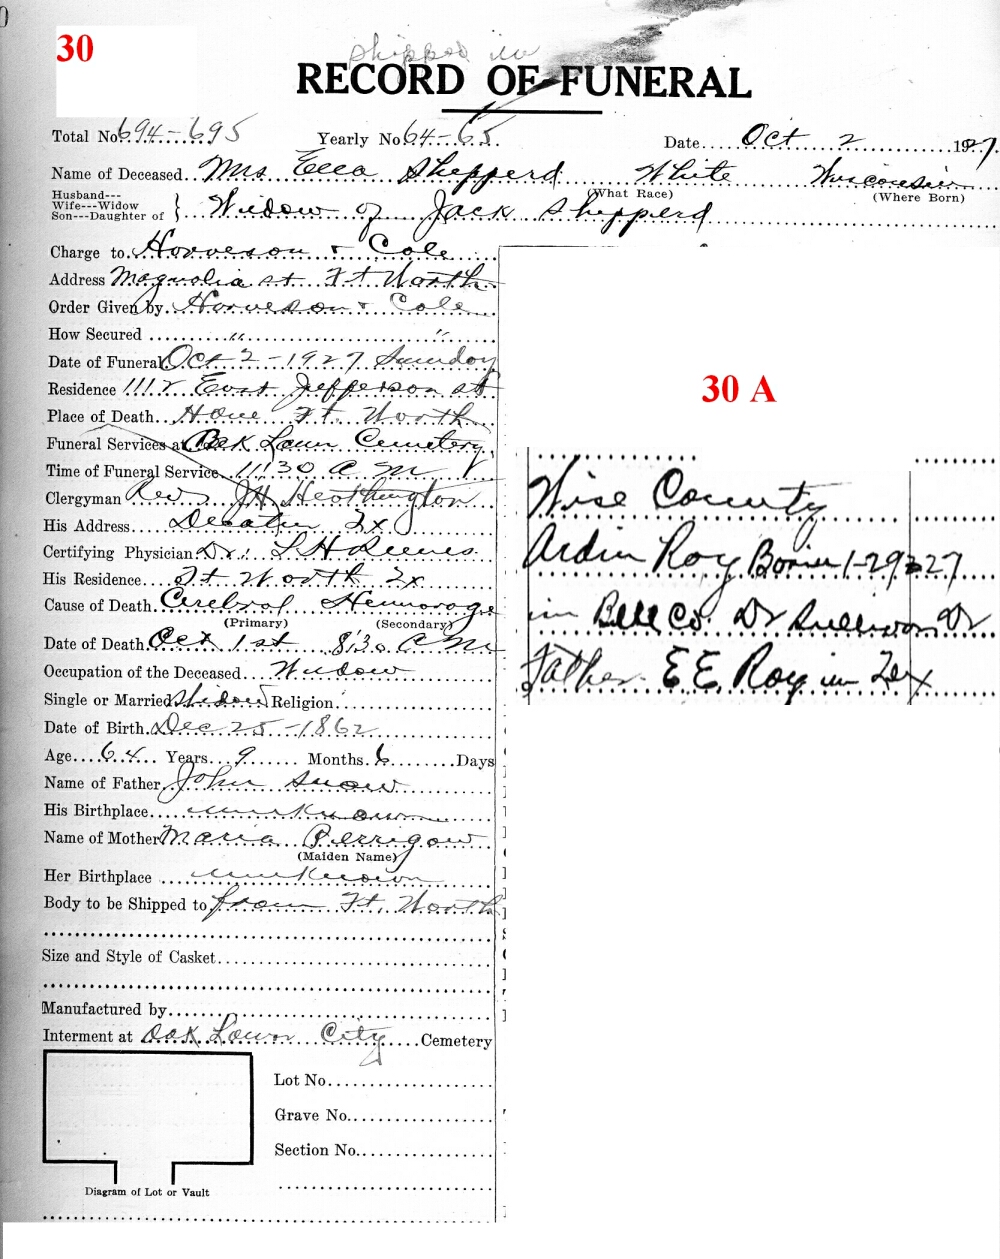 30
shipped in
RECORD OF FUNERAL
Total No. 694-695 Yearly No. 64-65. Date Oct 2 1927
Name of Deceased Mrs Ella Shepperd White Wisconsin
Husband---
Wife---Widow
Son---Daughter of } Widow of Jack Shepperd
(What Race) (Where Born)
Charge to Harveson & Cole
Address Magnolia st. Ft Worth
Order Given by Harveson & Cole
How Secured " "
Date of Funeral Oct 2-1927 Sunday
Residence 1112 East Jefferson st
Place of Death Home Ft. Worth
Funeral Services at Oak Lawn Cemetery
Time of Funeral Service 11:30 A M
Clergyman Rev JH Heathington
His Address Decatur Tx
Certifying Physician Dr. S H Reeves
His Residence Ft Worth Tx
Cause of Death Cerebral Hemorage
(Primary) (Secondary)
Date of Death Oct 1st 8:30 A M
Occupation of the Deceased Widow
Single or Married Widow Religion
Date of Birth Dec 25-1862
Age 64 Years 9 Months 6 Days
Name of Father John Snow
His Birthplace unknown
Name of Mother Maria Perrigow
(Maiden Name)
Her Birthplace unknown
Body to be Shipped to from Ft. Worth
Size and Style of Casket
Manufactured by
Interment at Oak Lawn City Cemetery
Lot No.
Grave No.
Section No.
Diagram of Lot or Vault
30 A
Wise County
Ardin Roy Born 1-29-27
in Bell Co. Dr Sullivan Dr
Father E E Roy in Tex